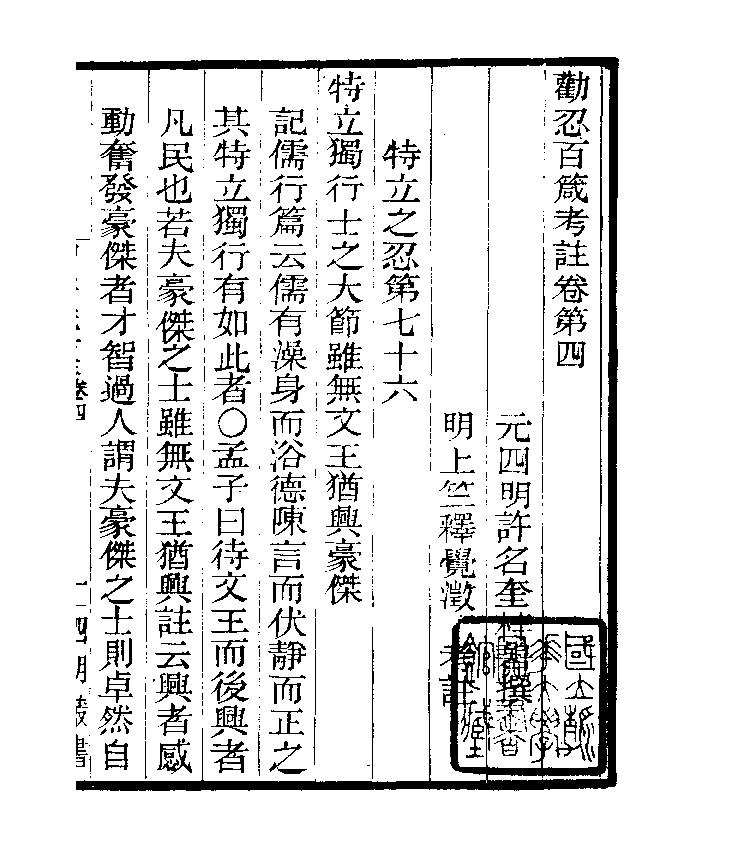 勸忍百箴考註卷第四
元四明許名奎撰
明上竺釋覺澂考註
特立之忍第七十六
特立獨行士之大節雖無文王猶興豪傑
記儒行篇云儒有澡身而浴德陳言而伏靜而正之
其特立獨行有如此者○孟子曰待文王而後興者
凡民也若夫豪傑之士雖無文王猶興註云興者感
動奮發豪傑者才智過人謂夫豪傑之士則卓然自
卷四
四明叢書
國立
大學
館藏